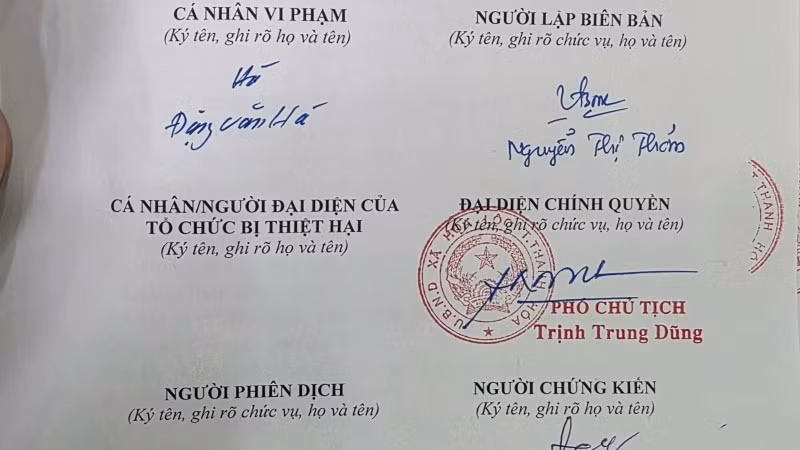 CÁ NHÂN VI PHẠM
(Ký tên, ghi rõ họ và tên)
NGƯỜI LẬP BIÊN BẢN
(Ký tên, ghi rõ chức vụ, họ và tên)
Hà
Đặng Văn Hà
Nguyễn Thị Thơm
CÁ NHÂN/NGƯỜI ĐẠI DIỆN CỦA
TỔ CHỨC BỊ THIỆT HẠI
(Ký tên, ghi rõ họ và tên)
ĐẠI DIỆN CHÍNH QUYỀN
(Ký tên, ghi rõ chức vụ, họ và tên)
U.B.N.D XÃ
T.THANH HÓA
THANH
PHÓ CHỦ TỊCH
Trịnh Trung Dũng
NGƯỜI PHIÊN DỊCH
(Ký tên, ghi rõ chức vụ, họ và tên)
NGƯỜI CHỨNG KIẾN
(Ký tên, ghi rõ họ và tên)